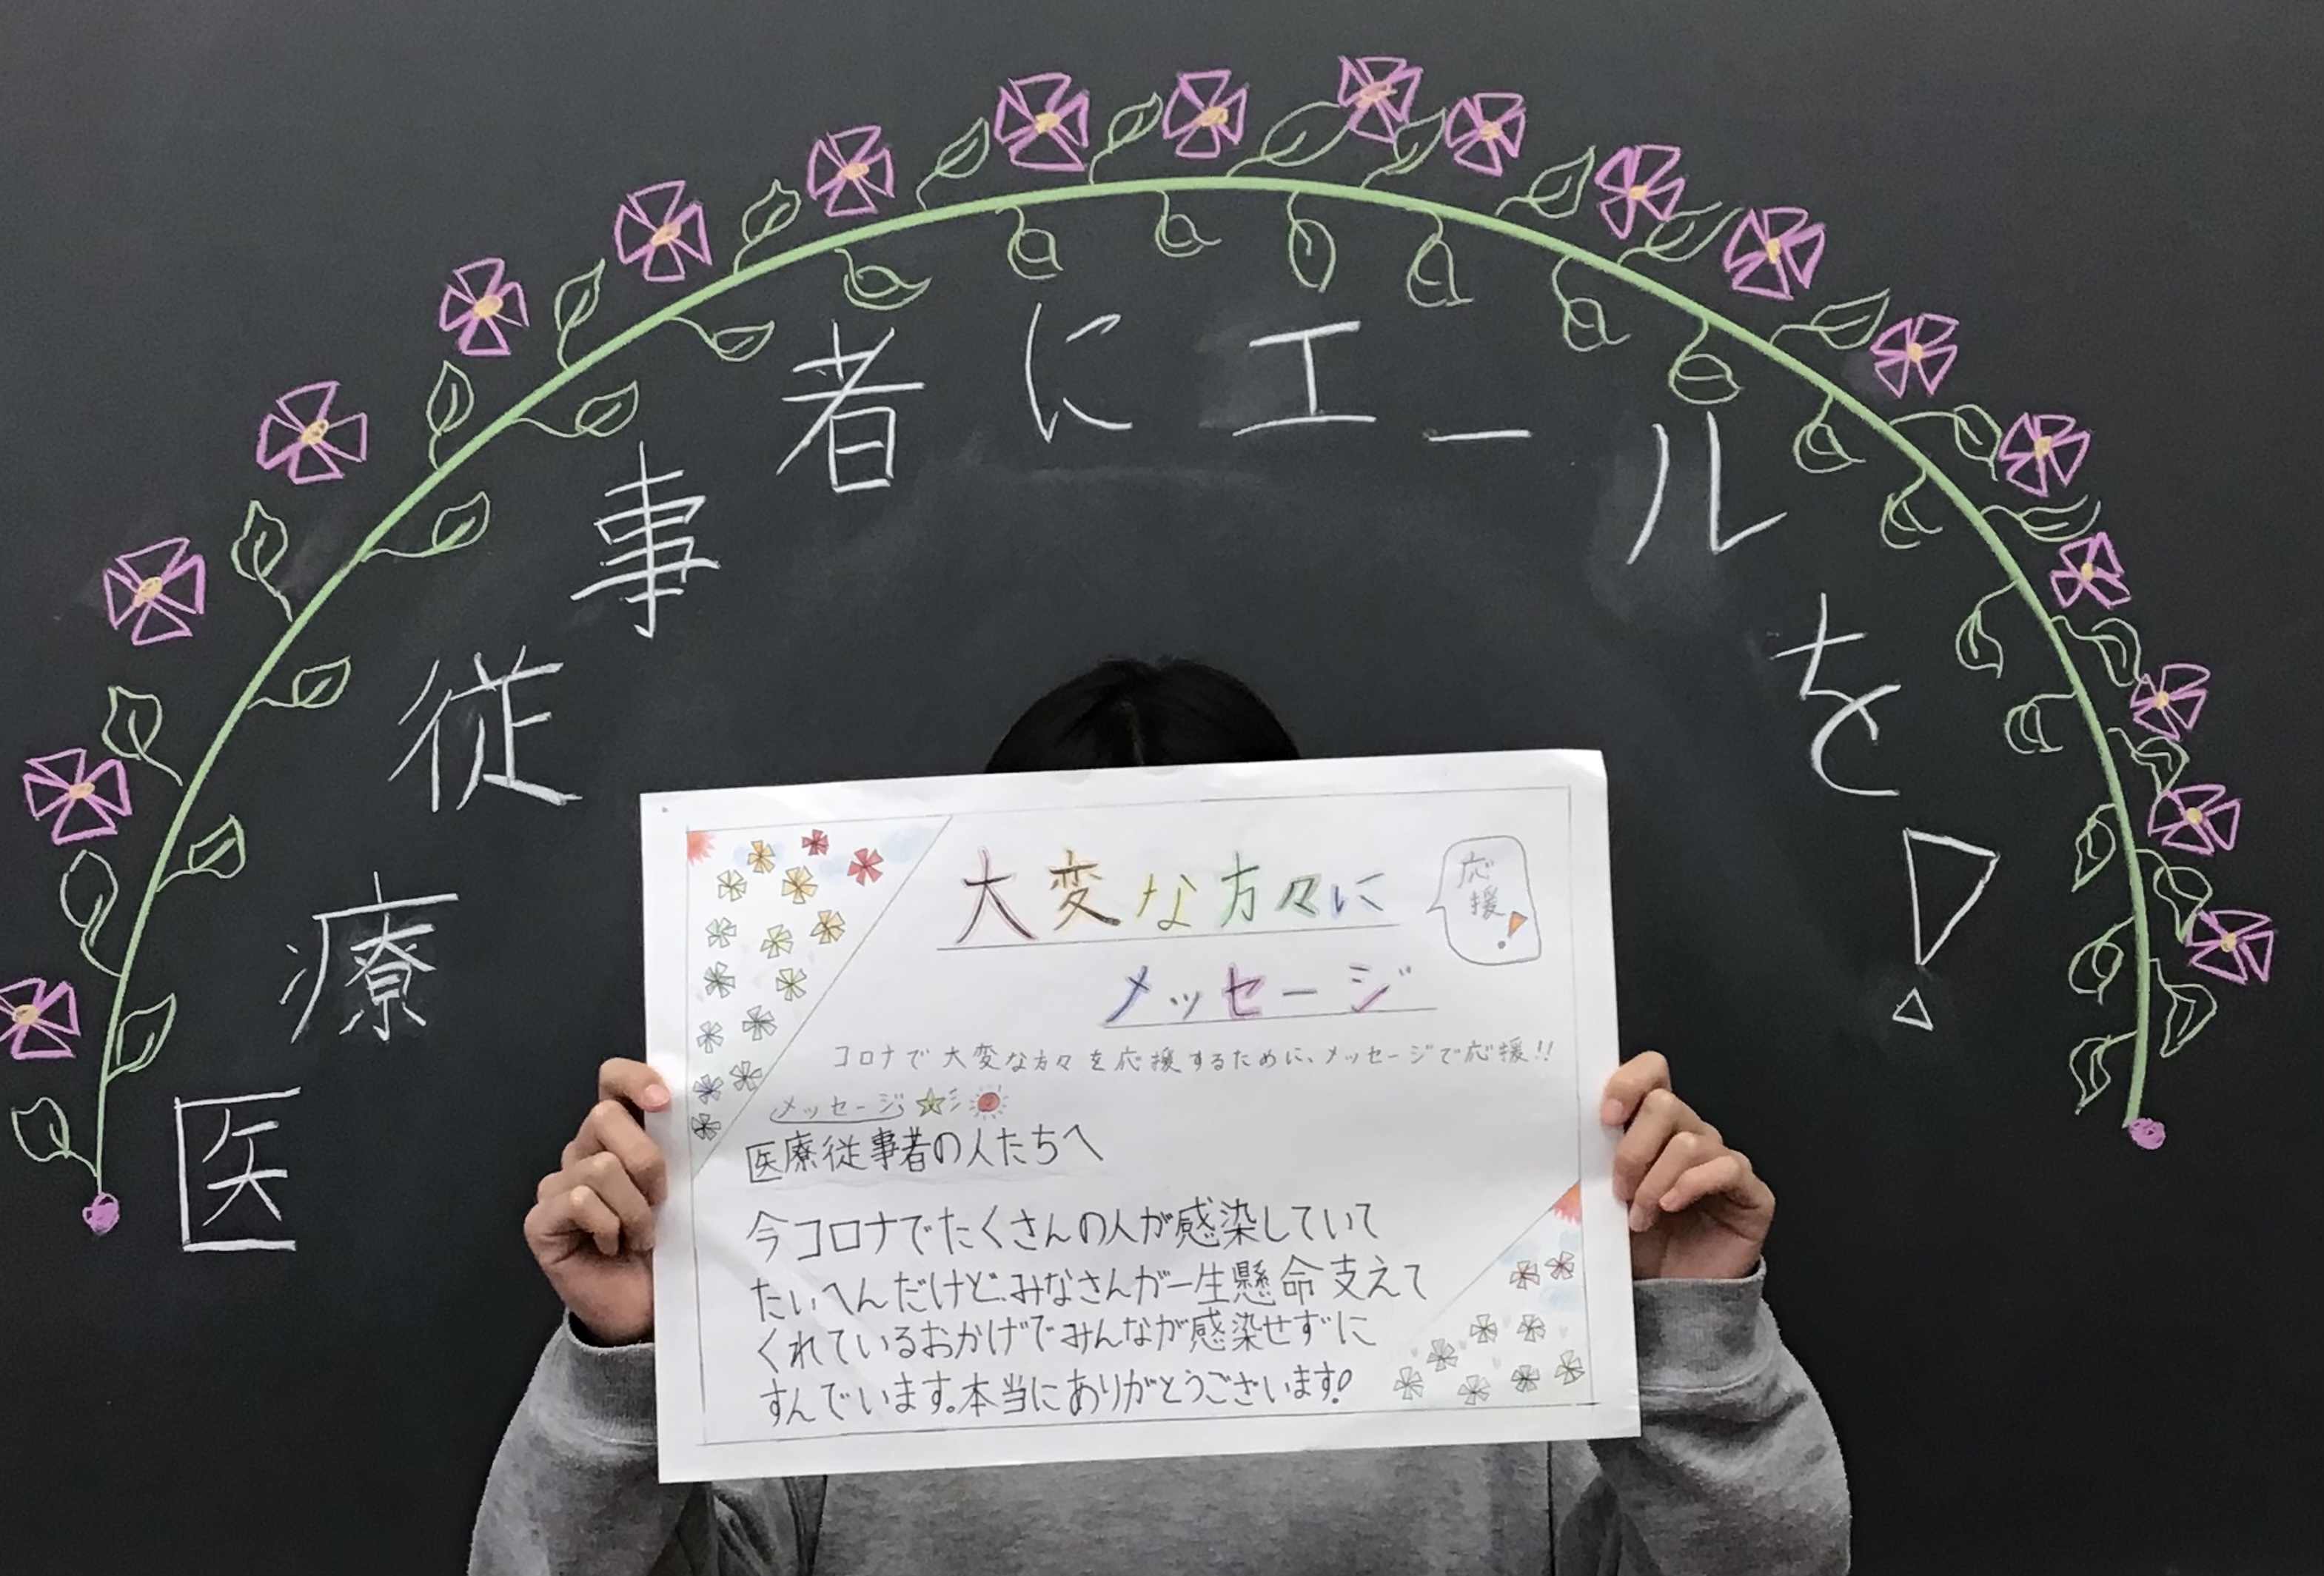 医療従事者にエールを!
大変な方々に
メッセージ
応援!
コロナで大変な方々を応援するために、メッセージで応援!!
メッセージ
医療従事者の人たちへ
今コロナでたくさんの人が感染していて
たいへんだけど、みなさんが一生懸命支えて
くれているおかげでみんなが感染せずに
すんでいます。本当にありがとうございます!